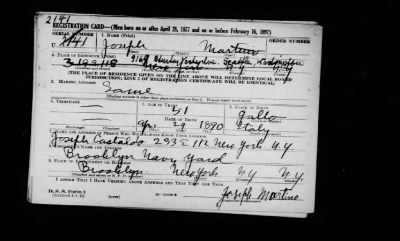 2141
REGISTRATION CARD—(Men born on or after April 28, 1877 and on or before February 16, 1897)
SERIAL NUMBER 1. NAME (Print) ORDER NUMBER
2141 Joseph Martino
2. PLACE OF RESIDENCE (Print)
Seattle Washington
New York N.Y.
[THE PLACE OF RESIDENCE GIVEN ON THE LINE ABOVE WILL DETERMINE LOCAL BOARD
JURISDICTION; LINE 2 OF REGISTRATION CERTIFICATE WILL BE IDENTICAL]
3. MAILING ADDRESS
Same
4. TELEPHONE 5. AGE IN YEARS 6. PLACE OF BIRTH
51 Gallo
DATE OF BIRTH
Apr. 29 1890 Italy
7. NAME AND ADDRESS OF PERSON WHO WILL ALWAYS KNOW YOUR ADDRESS
Joseph Castaldo 233 E 112 New York N.Y
8. EMPLOYER'S NAME AND ADDRESS
Brooklyn Navy Yard
9. PLACE OF EMPLOYMENT OR BUSINESS
Brooklyn New York N.Y N.Y
I AFFIRM THAT I HAVE VERIFIED ABOVE ANSWERS AND THAT THEY ARE TRUE.
D. S. S. Form 1
Joseph Martino